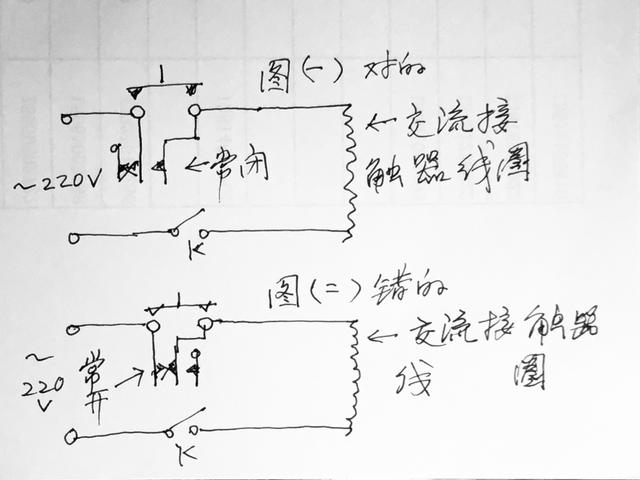 图(一)对的
←交流接
触器线圈
←常闭
~220V
K
图(二)错的
←交流接触器
线 圈
~
220
V
常
开
K